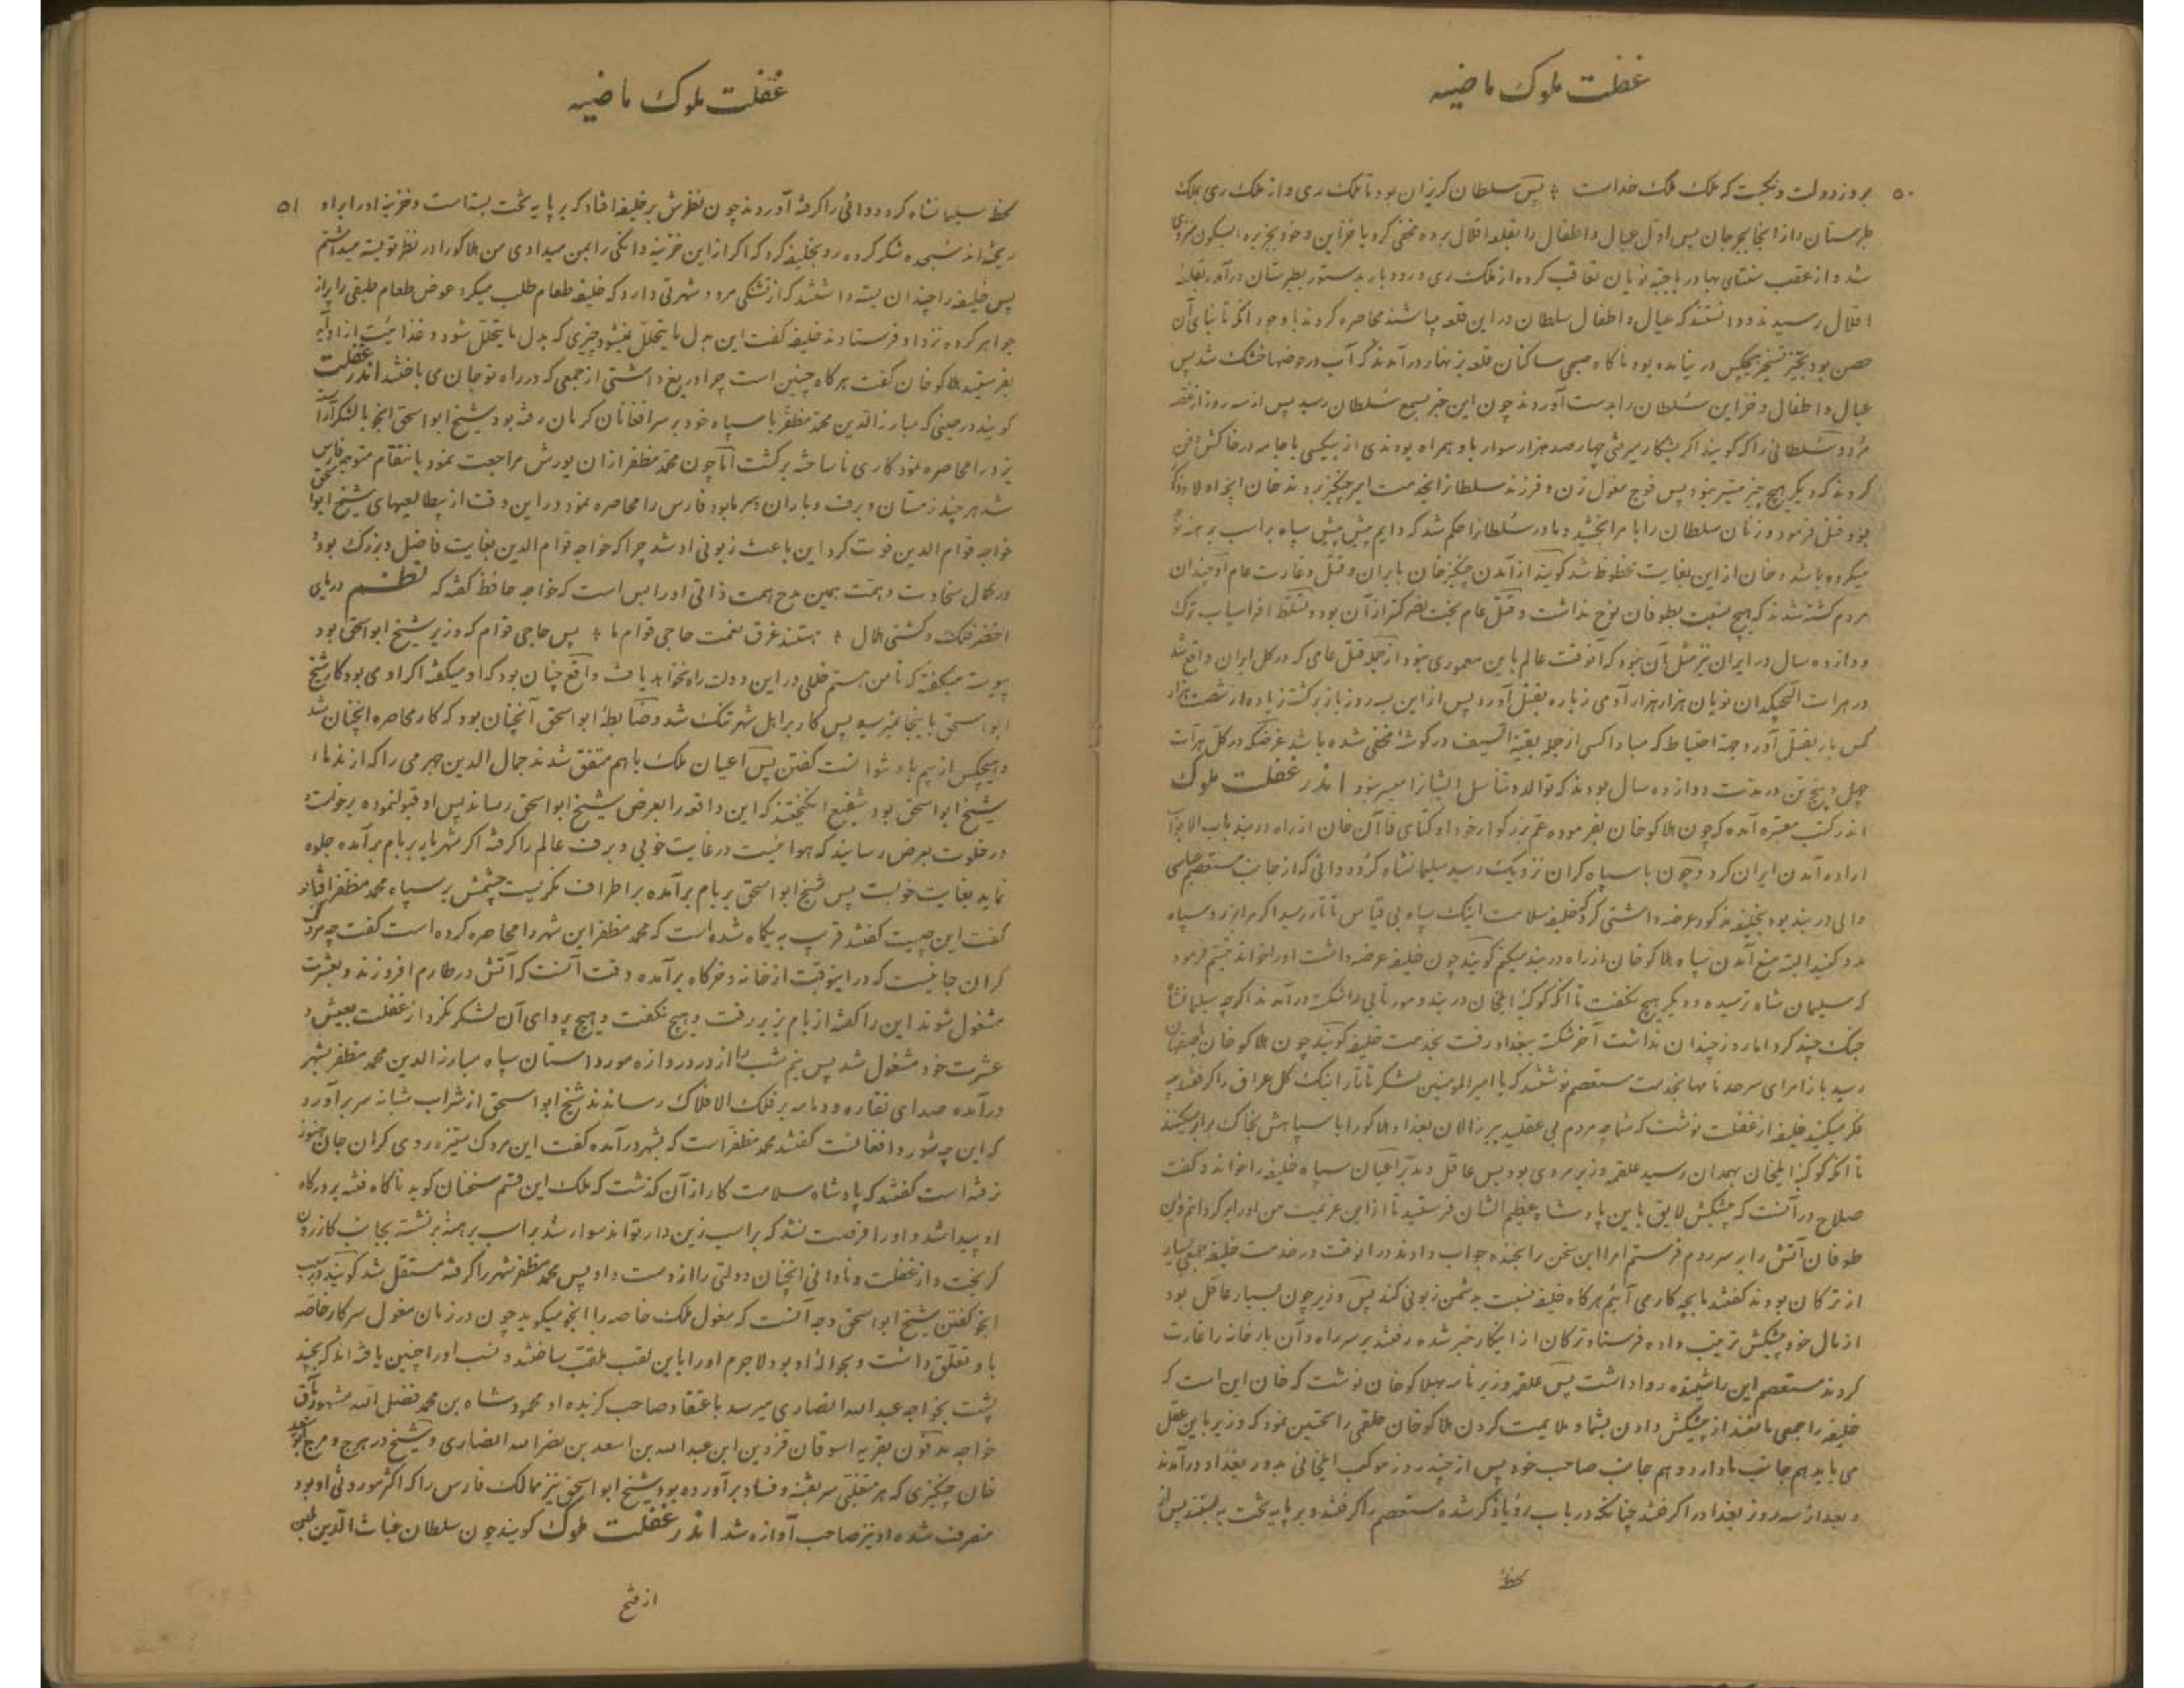 غفلت ملوک ماضیه
۵۰
بروز دولت و نکبت که ملک ملک خداست پس سلطان کریزان بود تا ملک ری و از ملک ری بملک
طبرستان و از آنجا بجرجان پس اول عیال و اطفال را بقلعه اقلال برده مخفی کرد با خزاین و خود بجزیره آبسکون متواری
شد و از عقب سنتای بهادر با جبه نویان تعاقب کرده از ملک ری و رودبار بدستور بطبرستان درآمده بقلعه
اقلال رسیدند و دانستند که عیال و اطفال سلطان در این قلعه میباشند محاصره کردند با وجود آنکه تا بنای آن
حصن بود بحیز تسخیر هیچکس در نیامده بود ناکاه صبحی ساکنان قلعه بزنهار درآمدند که آب در حوضها خشک شد پس
عیال و اطفال و خزاین سلطان را بدست آوردند چون این خبر بسمع سلطان رسید پس از سه روز از غصه
مرد و سلطانی را که گویند اکر بشکار میرفتی چهار صد هزار سوار با او همراه بودندی از بیکسی با جامه در خاکش دفن
کردند که دیکر هیچ چیز میسر نبود پس فوج مغول زن و فرزند سلطانرا بخدمت امیر چنکیز بردند خان آنچه اولاد ذکور
بود قتل فرمود و زنان سلطان را بامرا بخشید و مادر سلطانرا حکم شد که دایم پیش پیش سپاه بر اسب برهنه نوحه
میکرده باشد و خان از این بغایت محظوظ شد کویند از آمدن چنکیز خان بایران و قتل و غارت عام او چندان
مردم کشته شدند که هیچ نسبت بطوفان نوح نداشت و قتل عام بخت نصر کمتر از آن بود و تسلط افراسیاب ترک
دوازده سال در ایران نیز مثل آن نبود که آنوقت عالم باین معموری نبود از جمله قتل عامی که در کل ایران واقع شد
در هرات ایلجیکدان نویان هزار هزار آدمی زیاده بقتل آورد پس از این بسه روز باز برکشته زیاده از شصت هزار
کس باز بقتل آورد جهة احتیاط که مبادا کسی از جمله بقیة السیف در کوشه مخفی شده باشد غرضکه در کل هرات
چهل و پنج تن در مدت دوازده سال بودند که توالد و تناسل ایشانرا میسر نبود اندر غفلت ملوک
اندر کتب معتبره آمده که چون هلاکوخان بفرموده عم بزرکوار خود اوکتای قاآن خان از راه دربند باب الابواب
اراده آمدن ایران کرد و چون با سپاه کران نزدیک رسید سلیمانشاه کرد دوانی که از جانب مستعصم عباسی
والی دربند بود بخلیفه مذکور عرضه داشتی کرد که خلیفه سلامت اینک سپاه بی قیاس تاتار رسید اکر مرا بزر و سپاه
مدد کنید البته منع آمدن سپاه هلاکوخان از راه دربند میکنم کویند چون خلیفه عرضه داشت او را خواند تبسم فرمود
که سلیمان شاه ترسیده و دیکر هیچ نکفت تا آنکه کوکبه ایلخان دربند و مور تابی را شکسته درآمدند اکرچه سلیمانشاه
جنک چند کرد اما روز چندان نداشت آخر شکسته ببغداد رفت بخدمت خلیفه کویند چون هلاکوخان باصفهان
رسید باز امرای سرحد نامها بخدمت مستعصم نوشتند که یا امیر المومنین لشکر تاتار اینک کل عراق را کرفتند چه
فکر میکنید خلیفه از غفلت نوشت که شما چه مردم بی عقلید پیر زالان بغداد هلاکو را با سپاهش بخاک برابر میکنند
تا آنکه کوکبه ایلخان بهمدان رسید علقمه وزیر مردی بود بس عاقل و مدبر اعیان سپاه خلیفه را خواند و کفت
صلاح در آنست که پیشکش لایق باین پادشاه عظیم الشان فرستید تا از این عزیمت من او را برکردانم و این
طوفان آتش را بر سر روم فرستم امرا این سخن را بخنده جواب دادند در آنوقت در خدمت خلیفه جمعی بسیار
از ترکان بودند کفتند ما بچه کار می آئیم هرکاه خلیفه نسبت بدشمن زبونی کند پس وزیر چون بسیار عاقل بود
از مال خود پیشکش ترتیب داده فرستاد ترکان از اینکار خبر شده رفتند بر سر راه و آن بارخانه را غارت
کردند مستعصم این را شنیده روا داشت پس علقمه وزیر نامه بهلاکوخان نوشت که خان این است که
خلیفه را جمعی مانعند از پیشکش دادن بشما و ملایمت کردن هلاکوخان خلقی را تحسین نمود که وزیر باین عقل
می باید هم جانب ما دارد و هم جانب صاحب خود پس از چند روز موکب ایلخانی بدور بغداد درآمدند
و بعد از سه روز بغداد را کرفتند چنانکه در باب رؤیا ذکر شده مستعصم را کرفتند و بر پایه تخت به بستند پس از
لحظه
غفلت ملوک ماضیه
۵۱
لحظه سلیمانشاه کرد دوانی را کرفته آوردند چون نظرش بر خلیفه افتاد که بر پایه تخت بسته است و خزینه او را برابر او
ریخته اند سجده شکر کرده رو بخلیفه کرد که اکر از این خزینه دانکی را بمن میدادی من هلاکو را در نظر تو بسته میداشتم
پس خلیفه را چندان بسته داشتند که از تشنکی مرد و شهرتی دارد که خلیفه طعام طلب میکرد عوض طعام طبقی را پر از
جواهر کرده نزد او فرستادند خلیفه کفت این بدل ما یتحلل نمیشود چیزی که بدل ما یتحلل شود و غذائیت از او آید
بفرستید هلاکوخان کفت هرکاه چنین است چرا دریغ داشتی از جمعی که در راه تو جان می باختند اندر غفلت
کویند در حینی که مبارزالدین محمد مظفر با سپاه خود بر سر افغانان کرمان رفته بود شیخ ابواسحق اینجو با لشکر آراسته
یزد را محاصره نمود کاری ناساخته برکشت اما چون محمد مظفر از آن یورش مراجعت نمود بانتقام متوجه فارس
شد هر چند زمستان و برف و باران و سرما بود فارس را محاصره نمود در این وقت از بیطالعیهای شیخ ابواسحق
خواجه قوام الدین فوت کرد این باعث زبونی او شد چرا که خواجه قوام الدین بغایت فاضل و بزرک بود و
در کمال سخاوت و همت همین مدح همت ذاتی او را بس است که خواجه حافظ کفته که نظم دریای
اخضر فلک و کشتی هلال هستند غرق نعمت حاجی قوام ما پس حاجی قوام که وزیر شیخ ابواسحق بود
پیوسته میکفته که تا من هستم خللی در این دولت راه نخواهد یافت واقع چنان بود که او میکفته اکر او می بود کار شیخ
ابواسحق باینجا نمیرسید پس کار بر اهل شهر تنک شد و ضابطه ابواسحق آنچنان بود که کار محاصره آنچنان شد
و هیچکس از بیم باو نتوانست کفتن پس اعیان ملک با هم متفق شدند جمال الدین جهرمی را که از ندماء
شیخ ابواسحق بود شفیع انکیختند که این واقعه را بعرض شیخ ابواسحق رساند پس او قبول نموده برخواست و
در خلوت بعرض رسانید که هوائیست در غایت خوبی و برف عالم را کرفته اکر شهریار بر بام برآمده جلوه
نماید بغایت خوبست پس شیخ ابواسحق بر بام برآمده بر اطراف نکریست چشمش بر سپاه محمد مظفر افتاد
کفت این چیست کفتند قریب به یکماه شده است که محمد مظفر این شهر را محاصره کرده است کفت چه مردک
کران جانیست که در اینوقت از خانه و خرکاه برآمده وقت آنست که آتش در طارم افروزند و بعشرت
مشغول شوند این را کفته از بام بزیر رفت و هیچ نکفت و هیچ پروای آن لشکر نکرد از غفلت بعیش و
عشرت خود مشغول شد پس نیم شب از در دروازه مورداستان سپاه مبارزالدین محمد مظفر بشهر
درآمده صدای نقاره و دمامه بر فلک الافلاک رساندند شیخ ابواسحق از شراب شبانه سر برآورد
که این چه شور و افغانست کفتند محمد مظفر است که بشهر درآمده کفت این مردک ستیزه روی کران جان هنوز
نرفته است کفتند که پادشاه سلامت کار از آن کذشت که ملک این قسم سخنان کوید ناکاه فتنه بر درکاه
او پیدا شد و او را فرصت نشد که بر اسب زین دار تواند سوار شد بر اسب برهنه برنشته بجانب کازرون
کریخت و از غفلت و نادانی آنچنان دولتی را از دست داد پس محمد مظفر شهر را کرفته مستقل شد کویند در سبب
اینجو کفتن شیخ ابواسحق وجه آنست که مغول ملک خاصه را اینجو میکوید چون در زمان مغول سرکار خاصه
باو تعلق داشت و بحواله او بود لاجرم او را باین لقب ملقب ساختند و نسب او را چنین یافته اند که بچند
پشت بخواجه عبدالله انصاری میرسد باعتقاد صاحب کزیده او محمود شاه بن محمد فضل الله مشهور بآق
خواجه مدفون بقریه اسوقان قزوین ابن عبدالله بن اسعد بن نصرالله انصاری و شیخ در هرج و مرج ابوسعید
خان چنکیزی که هر متغلبی سر بفتنه و فساد برآورده بود شیخ ابواسحق نیز ممالک فارس را که اکثر موروثی او بود
متصرف شده او نیز صاحب آوازه شد اندر غفلت ملوک کویند چون سلطان غیاث الدین بلبن
از فتح